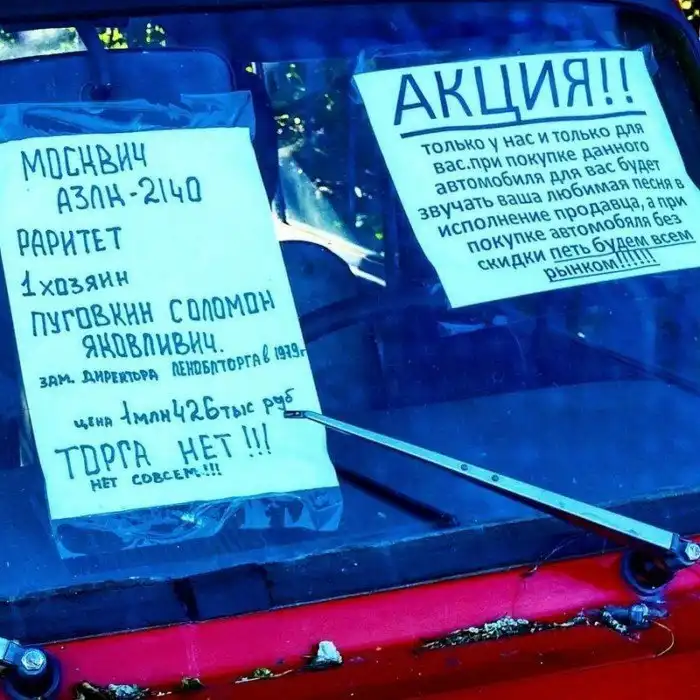 МОСКВИЧ
АЗЛК-2140
РАРИТЕТ
1 ХОЗЯИН
ПУГОВКИН СОЛОМОН
ЯКОВЛИВИЧ.
ЗАМ. ДИРЕКТОРА ЛЕНОБЛТОРГА в 1979г
ЦЕНА 1МЛН 426ТЫС РУБ
ТОРГА НЕТ!!!
НЕТ СОВСЕМ!!!
АКЦИЯ!!
только у нас и только для
вас.при покупке данного
автомобиля для вас будет
звучать ваша любимая песня в
исполнение продавца, а при
покупке автомобяля без
скидки петь будем всем
рынком!!!!!!